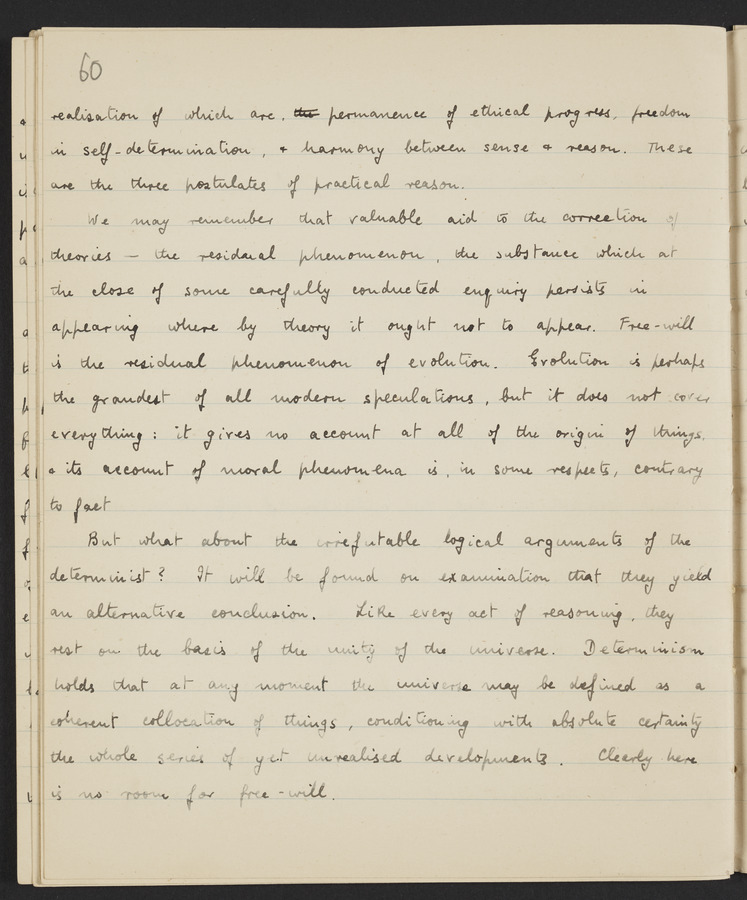 60
realisation of which are, the permanence of ethical progress, freedom
in self-determination, + harmony between sense + reason. These
are the three postulates of practical reason.
We may remember that valuable aid to the correction of
theories — the residual phenomenon, the substance which at
the close of some carefully conducted enquiry persists in
appearing where by theory it ought not to appear. Free-will
is the residual phenomenon of evolution. Evolution is perhaps
the grandest of all modern speculations, but it does not cover
everything: it gives no account at all of the origin of things,
+ its account of moral phenomena is, in some respects, contrary
to fact
But what about the irrefutable logical arguments of the
determinist? It will be found on examination that they yield
an alternative conclusion. Like every act of reasoning, they
rest on the basis of the unity of the universe. Determinism
holds that at any moment the universe may be defined as a
coherent collocation of things, conditioning with absolute certainty
the whole series of yet unrealised developments. Clearly here
is no room for free-will.